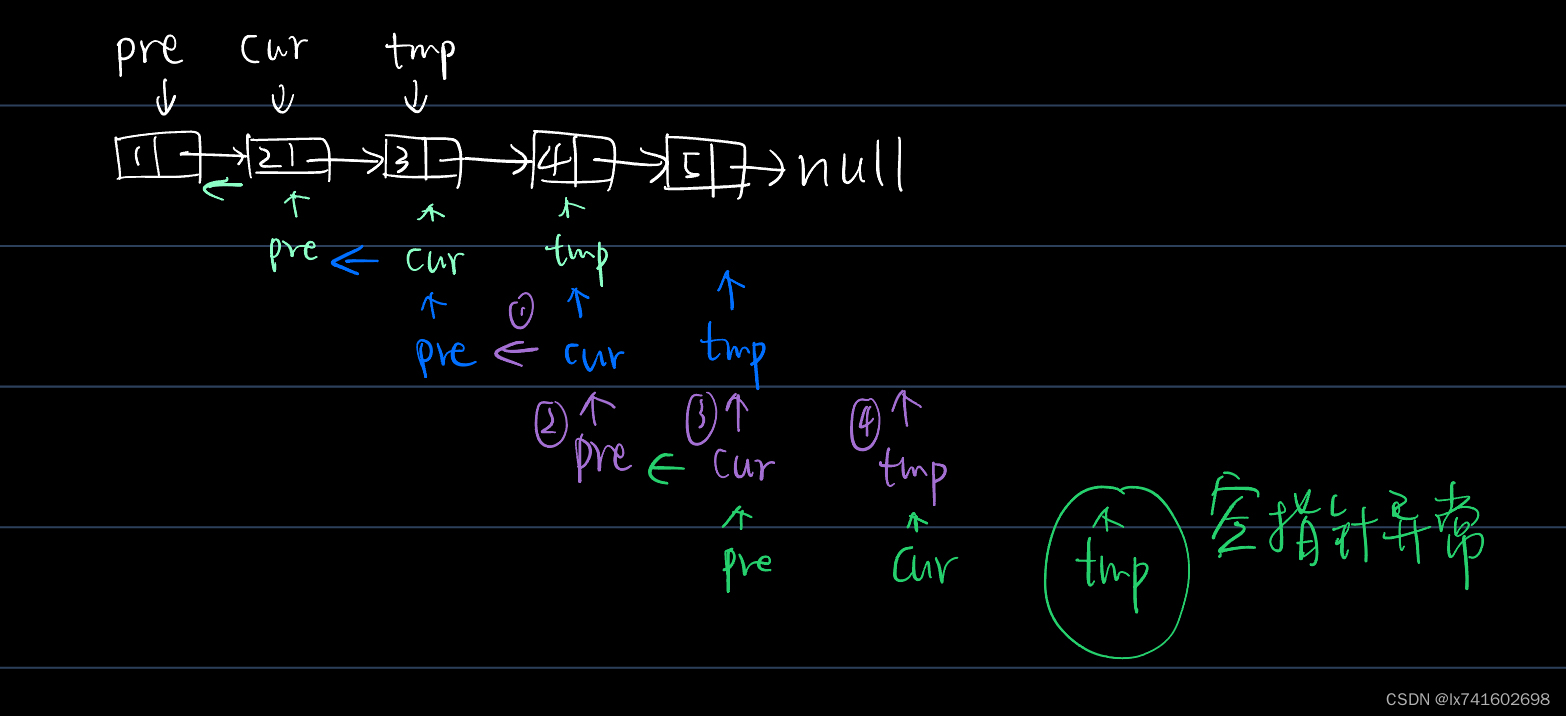 pre cur tmp
1 2 3 4 5 null
pre cur tmp
①
pre cur tmp
② ③ ④
pre cur tmp
空指针异常
pre cur tmp
CSDN @lx741602698